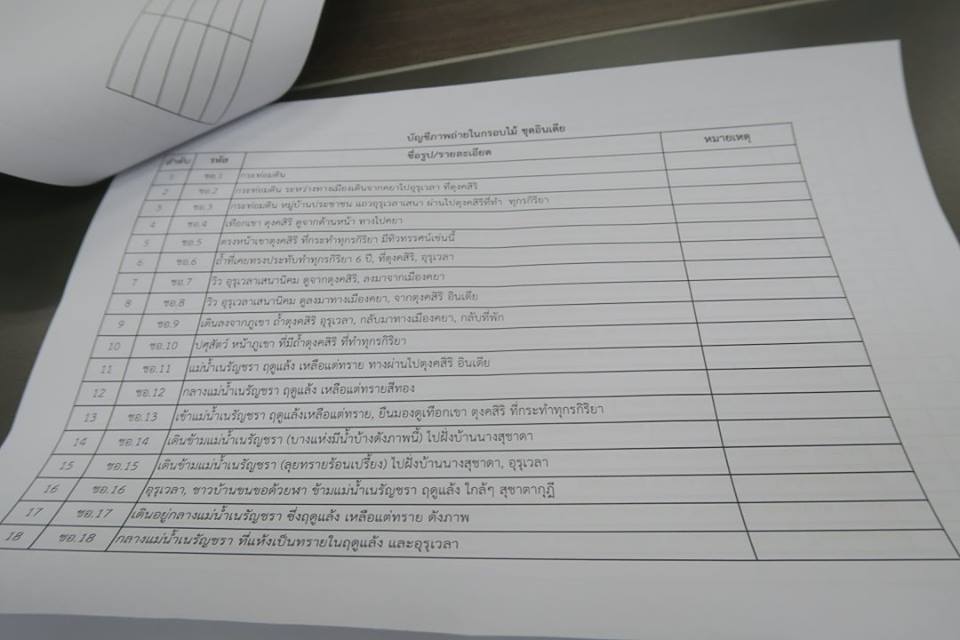 บัญชีภาพถ่ายในกรอบไม้ ชุดอินเดีย
ลำดับ รหัส ชื่อรูป/รายละเอียด หมายเหตุ
1 ชอ.1 กระท่อมดิน
2 ชอ.2 กระท่อมดิน ระหว่างทางเมืองเดินจากคยาไปอุรุเวลา ที่ดุงคสิริ
3 ชอ.3 กระท่อมดิน หมู่บ้านประชาชน แถวอุรุเวลาเสนา ผ่านไปดุงคสิริที่ทำ ทุกรกิริยา
4 ชอ.4 เทือกเขา ดุงคสิริ ดูจากด้านหน้า ทางไปคยา
5 ชอ.5 ตรงหน้าเขาดุงคสิริ ที่กระทำทุกรกิริยา มีทิวทรรศน์เช่นนี้
6 ชอ.6 ถ้ำที่เคยทรงประทับทำทุกรกิริยา 6 ปี, ที่ดุงคสิริ, อุรุเวลา
7 ชอ.7 วิว อุรุเวลาเสนานิคม ดูจากดุงคสิริ, ลงมาจากเมืองคยา
8 ชอ.8 วิว อุรุเวลาเสนานิคม ดูลงมาทางเมืองคยา, จากดุงคสิริ อินเดีย
9 ชอ.9 เดินลงจากภูเขา ถ้ำดุงคสิริ อุรุเวลา, กลับมาทางเมืองคยา, กลับที่พัก
10 ชอ.10 ปศุสัตว์ หน้าภูเขา ที่มีถ้ำดุงคสิริ ที่ทำทุกรกิริยา
11 ชอ.11 แม่น้ำเนรัญชรา ฤดูแล้ง เหลือแต่ทราย ทางผ่านไปดุงคสิริ อินเดีย
12 ชอ.12 กลางแม่น้ำเนรัญชรา ฤดูแล้ง เหลือแต่ทรายสีทอง
13 ชอ.13 เข้าแม่น้ำเนรัญชรา ฤดูแล้งเหลือแต่ทราย, ยืนมองดูเทือกเขา ดุงคสิริ ที่กระทำทุกรกิริยา
14 ชอ.14 เดินข้ามแม่น้ำเนรัญชรา (บางแห่งมีน้ำบ้างดังภาพนี้) ไปฝั่งบ้านนางสุชาดา
15 ชอ.15 เดินข้ามแม่น้ำเนรัญชรา (ลุยทรายร้อนเปรี้ยง) ไปฝั่งบ้านนางสุชาดา, อุรุเวลา
16 ชอ.16 อุรุเวลา, ชาวบ้านขนขอด้วยฬา ข้ามแม่น้ำเนรัญชรา ฤดูแล้ง ใกล้ๆ สุชาดากุฎี
17 ชอ.17 เดินอยู่กลางแม่น้ำเนรัญชรา ซึ่งฤดูแล้ง เหลือแต่ทราย ดังภาพ
18 ชอ.18 กลางแม่น้ำเนรัญชรา ที่แห้งเป็นทรายในฤดูแล้ง และอุรุเวลา